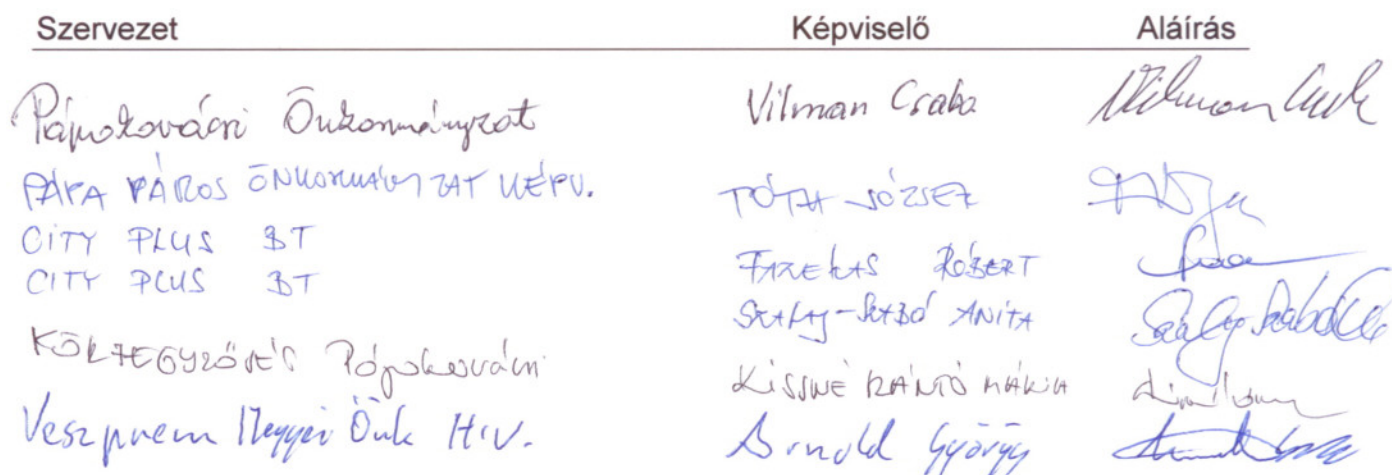 Szervezet Képviselő Aláírás
Pápakovácsi Önkormányzat Vilman Csaba Vilman Csaba
PÁPA VÁROS ÖNKORMÁNYZAT KÉPV. TÓTH JÓZSEF
CITY PLUS BT FAZEKAS RÓBERT
CITY PLUS BT SZALAY-SZABÓ ANITA
KÖRJEGYZŐSÉG Pápakovácsi KISSNÉ RÁNTÓ MÁRIA
Veszprém Megyei Önk Hiv. Arnold György